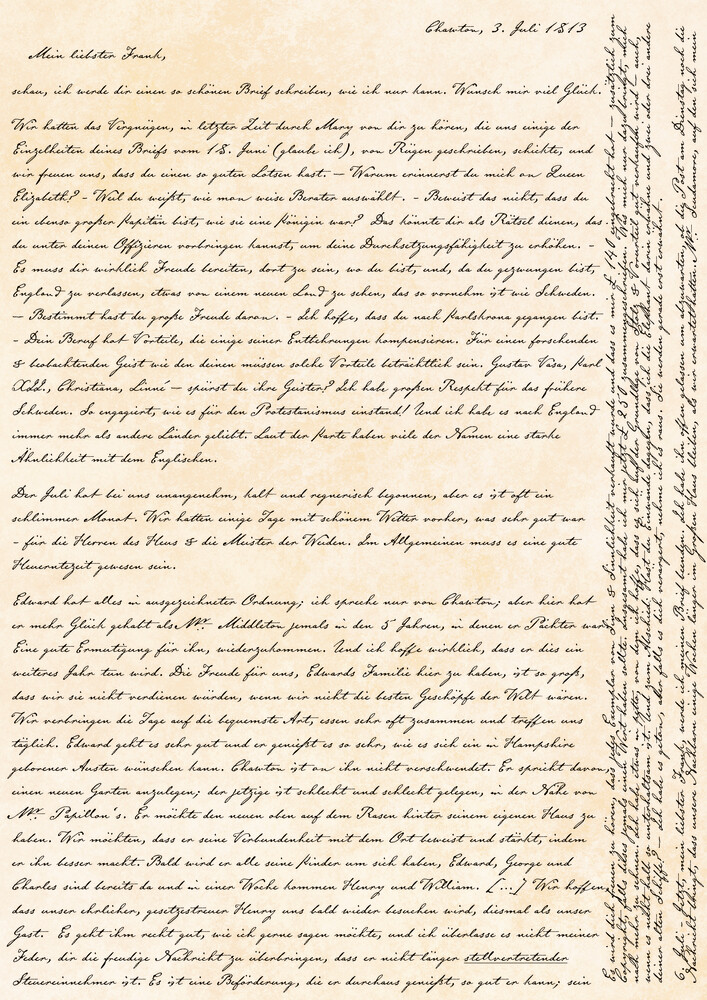 Chawton, 3. Juli 1813
Mein liebster Frank,
schau, ich werde dir einen so schönen Brief schreiben, wie ich nur kann. Wünsch mir viel Glück.
Wir hatten das Vergnügen, in letzter Zeit durch Mary von dir zu hören, die uns einige der
Einzelheiten deines Briefs vom 18. Juni (glaube ich), von Rügen geschrieben, schickte, und
wir freuen uns, dass du einen so guten Lotsen hast. — Warum erinnerst du mich an Queen
Elizabeth? - Weil du weißt, wie man weise Berater auswählt. - Beweist das nicht, dass du
ein ebenso großer Kapitän bist, wie sie eine Königin war? Das könnte dir als Rätsel dienen, das
du unter deinen Offizieren vorbringen kannst, um deine Durchsetzungsfähigkeit zu erhöhen. -
Es muss dir wirklich Freude bereiten, dort zu sein, wo du bist, und, da du gezwungen bist,
England zu verlassen, etwas von einem neuen Land zu sehen, das so vornehm ist wie Schweden.
— Bestimmt hast du große Freude daran. - Ich hoffe, dass du nach Karlskrona gegangen bist.
- Dein Beruf hat Vorteile, die einige seiner Entbehrungen kompensieren. Für einen forschenden
& beobachtenden Geist wie den deinen müssen solche Vorteile beträchtlich sein. Gustav Vasa, Karl
XII., Christiana, Linné — spürst du ihre Geister? Ich habe großen Respekt für das frühere
Schweden. So engagiert, wie es für den Protestanismus einstand! Und ich habe es nach England
immer mehr als andere Länder geliebt. Laut der Karte haben viele der Namen eine starke
Ähnlichkeit mit dem Englischen.
Der Juli hat bei uns unangenehm, kalt und regnerisch begonnen, aber es ist oft ein
schlimmer Monat. Wir hatten einige Tage mit schönem Wetter vorher, was sehr gut war
- für die Herren des Heus & die Meister der Weiden. Im Allgemeinen muss es eine gute
Heuerntezeit gewesen sein.
Edward hat alles in ausgezeichneter Ordnung; ich spreche nur von Chawton; aber hier hat
er mehr Glück gehabt als Mr. Middleton jemals in den 5 Jahren, in denen er Pächter war.
Eine gute Ermutigung für ihn, wiederzukommen. Und ich hoffe wirklich, dass er dies ein
weiteres Jahr tun wird. Die Freude für uns, Edwards Familie hier zu haben, ist so groß,
dass wir sie nicht verdienen würden, wenn wir nicht die besten Geschöpfe der Welt wären.
Wir verbringen die Tage auf die bequemste Art, essen sehr oft zusammen und treffen uns
täglich. Edward geht es sehr gut und er genießt es so sehr, wie es sich ein in Hampshire
geborener Austen wünschen kann. Chawton ist an ihn nicht verschwendet. Er spricht davon,
einen neuen Garten anzulegen; der jetzige ist schlecht und schlecht gelegen, in der Nähe von
Mr. Papillon's. Er möchte den neuen oben auf dem Rasen hinter seinem eigenen Haus zu
haben. Wir möchten, dass er seine Verbundenheit mit dem Ort beweist und stärkt, indem
er ihn besser macht. Bald wird er alle seine Kinder um sich haben, Edward, George und
Charles sind bereits da und in einer Woche kommen Henry und William. [...] Wir hoffen,
dass unser ehrlicher, gesetzestreuer Henry uns bald wieder besuchen wird, diesmal als unser
Gast. Es geht ihm recht gut, wie ich gerne sagen möchte, und ich überlasse es nicht meiner
Feder, dir die freudige Nachricht zu überbringen, dass er nicht länger stellvertretender
Steuereinnehmer ist. Es ist eine Beförderung, die er durchaus genießt, so gut er kann; sein
Es wird dich freuen zu hören, dass jedes Exemplar von Sinn & Sinnlichkeit verkauft wurde und dass es mir £ 140 eingebracht hat — zusätzlich zum
Copyright, falls dieses jemals einen Wert haben sollte. Insgesamt habe ich mir jetzt £ 250 zusammengeschrieben. Was mich nur dazu bringt, mich